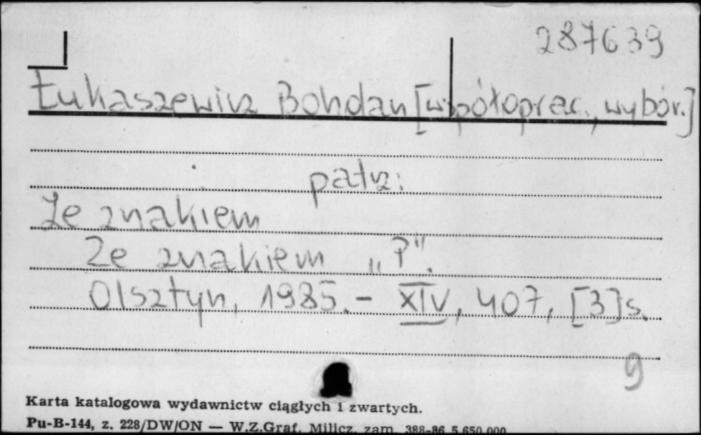 287639
Łukaszewicz Bohdan [współoprac., wybór.]
patrz:
Ze znakiem
Ze znakiem „P".
Olsztyn, 1985.- XIV, 407, [3]s.
9
Karta katalogowa wydawnictw ciągłych i zwartych.
Pu-B-144, z. 228/DW/ON — W.Z.Graf. Milicz, zam. 388-86 5.650.000